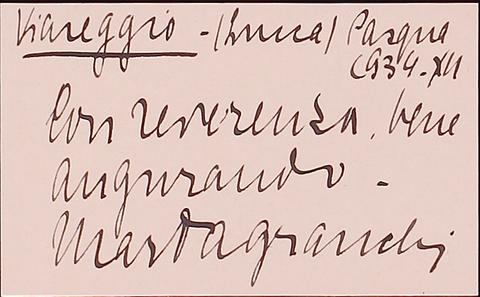 Viareggio - (Lucca) Pasqua
1934. XII
Con reverenza, bene
augurando -
Marta Granchi